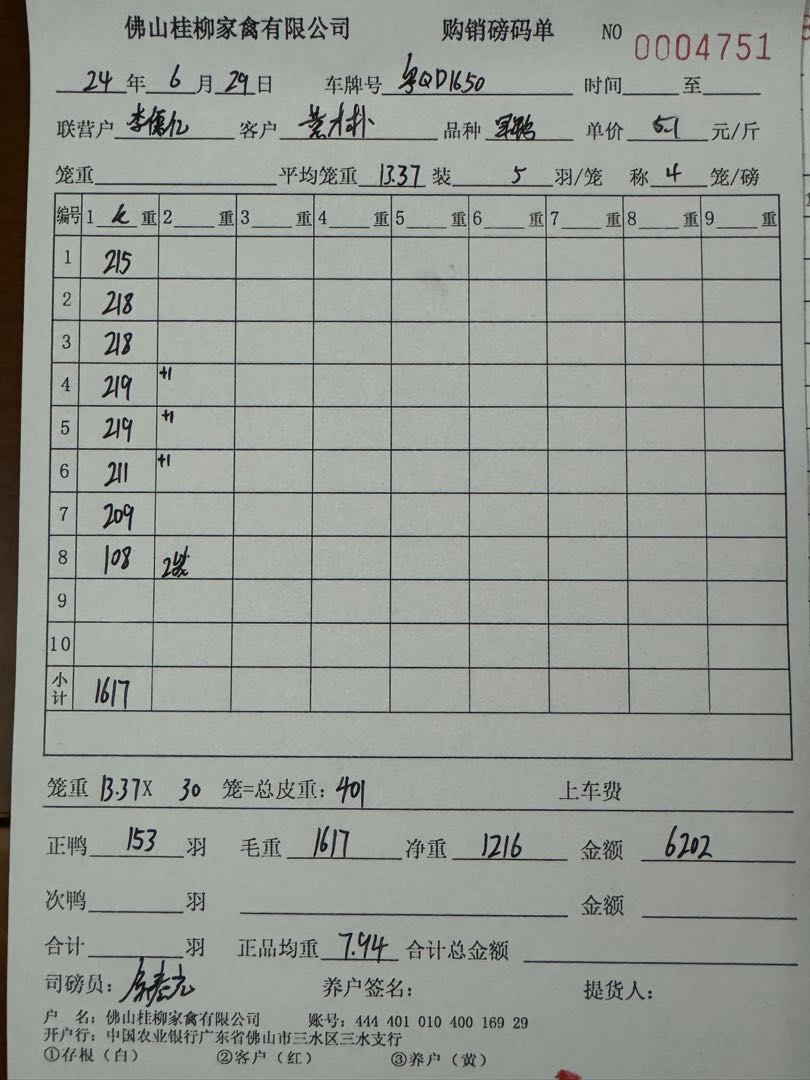 佛山桂柳家禽有限公司 购销磅码单 NO 0004751
24 年 6 月 29 日 车牌号 粤QD1650 时间 至
联营户 李儒亿 客户 品种 单价 5.1 元/斤
笼重 平均笼重 13.37 装 5 羽/笼 称 4 笼/磅
编号 1 k 重 2 重 3 重 4 重 5 重 6 重 7 重 8 重 9 重
1 215
2 218
3 218
4 219 +1
5 219 +1
6 211 +1
7 209
8 108 2
9
10
小计 1617
笼重 13.37 X 30 笼=总皮重: 401 上车费
正鸭 153 羽 毛重 1617 净重 1216 金额 6202
次鸭 羽 金额
合计 羽 正品均重 7.94 合计总金额
司磅员: 养户签名: 提货人:
户 名: 佛山桂柳家禽有限公司 账号: 444 401 010 400 169 29
开户行: 中国农业银行广东省佛山市三水区三水支行
①存根(白) ②客户(红) ③养户(黄)